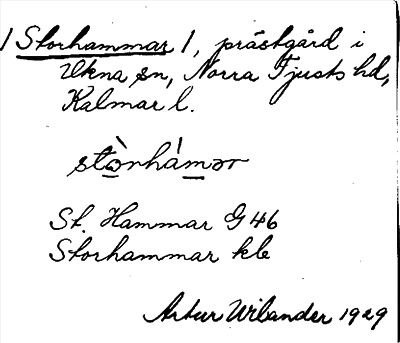 / Storhammar /, prästgård i
Ukna sn, Norra Tjusts hd,
Kalmar l.
stòrhámər
St. Hammar G 46
Storhammar kb
Artur Wilander 1929